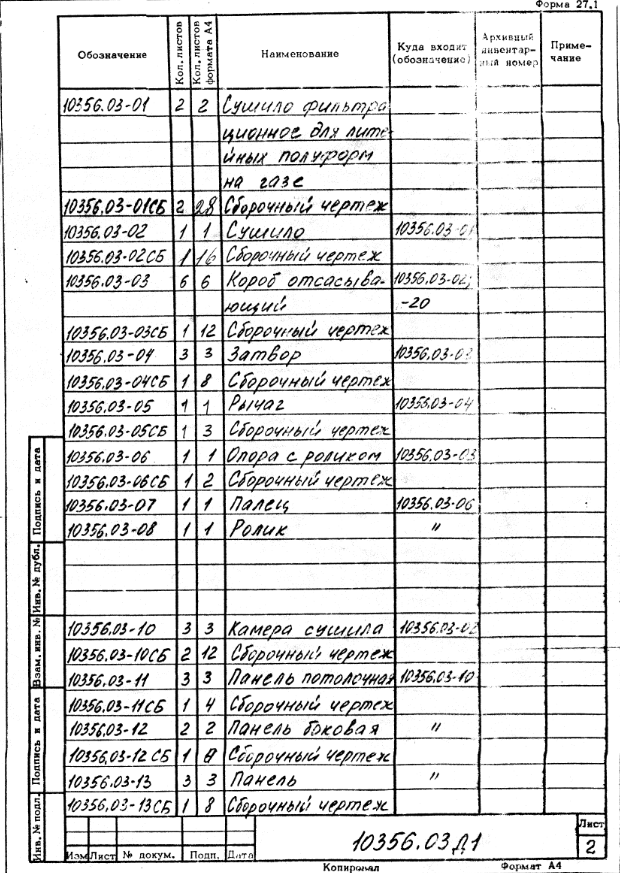 Форма 27.1
Обозначение Кол. листов Кол. листов формата А4 Наименование Куда входит (обозначение) Архивный инвентарный номер Примечание
10356.03-01 2 2 Сушило фильтра
ционное для лите
йных полуформ
на газе
10356.03-01СБ 2 28 Сборочный чертеж
10356.03-02 1 1 Сушило 10356.03-01
10356.03-02СБ 1 16 Сборочный чертеж
10356.03-03 6 6 Короб отсасыва- 10356.03-02,
ющий -20
10356.03-03СБ 1 12 Сборочный чертеж
10356.03-04 3 3 Затвор 10356.03-03
10356.03-04СБ 1 8 Сборочный чертеж
10356.03-05 1 1 Рычаг 10356.03-04
10356.03-05СБ 1 3 Сборочный чертеж
10356.03-06 1 1 Опора с роликом 10356.03-03
10356.03-06СБ 1 2 Сборочный чертеж
10356.03-07 1 1 Палец 10356.03-06
10356.03-08 1 1 Ролик "
10356.03-10 3 3 Камера сушила 10356.03-02
10356.03-10СБ 2 12 Сборочный чертеж
10356.03-11 3 3 Панель потолочная 10356.03-10
10356.03-11СБ 1 4 Сборочный чертеж
10356.03-12 2 2 Панель боковая "
10356.03-12 СБ 1 8 Сборочный чертеж
10356.03-13 3 3 Панель "
10356.03-13СБ 1 8 Сборочный чертеж
Инв. № подл. Подпись и дата Взам. инв. № Инв. № дубл. Подпись и дата
10356.03Д1
Лист
2
Изм Лист № докум. Подп. Дата
Копировал Формат А4